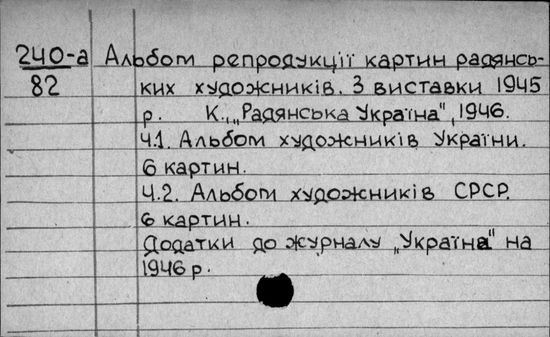 240-а Альбом репродукції картин радянсь-
82 ких художників. З виставки 1945
р. К., „Радянська Україна", 1946.
Ч.1. Альбом художників України.
6 картин.
Ч.2. Альбом художників СРСР.
6 картин.
Додатки до журналу „Україна" на
1946 р.